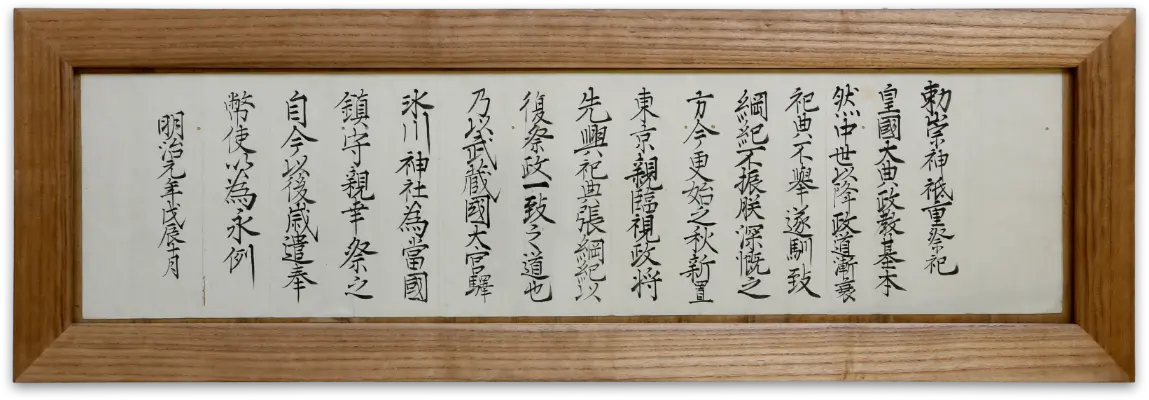 勅崇神祗重祭祀
皇國大典政教基本
然中世以降政道漸衰
祀典不擧遂馴致
綱紀不振朕深慨之
方今更始之秋新置
東京親臨視政将
先興祀典張綱紀以
復祭政一致之道也
乃以武蔵國大宮驛
氷川神社為當國
鎮守親幸祭之
自今以後歳遣奉
幣使以為永例
明治元年戊辰十月